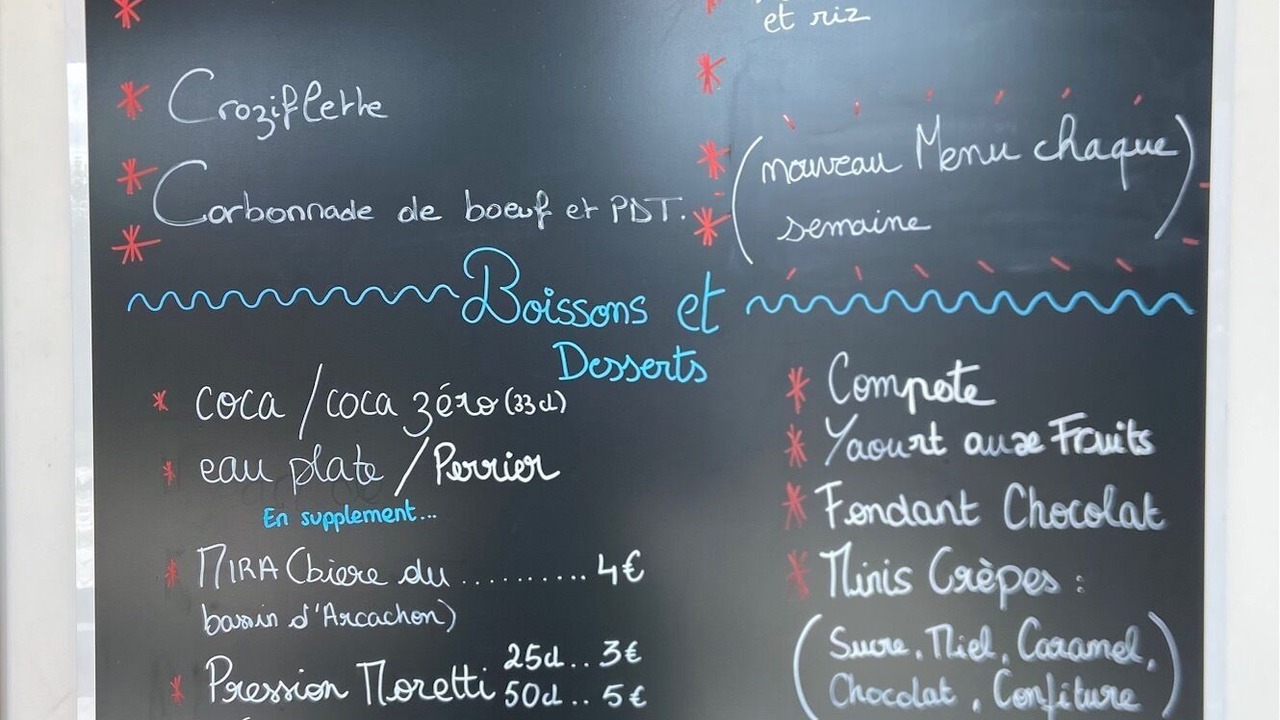 et riz
Croziflette
Carbonnade de boeuf et PDT.
(nouveau Menu chaque
semaine)
Boissons et
Desserts
coca / coca zéro (33cl)
eau plate / Perrier
En supplement...
MIRA (biere du .......... 4€
bassin d'Arcachon)
Pression Moretti 25cl.. 3€
50cl.. 5€
Compote
Yaourt aux Fruits
Fondant Chocolat
Minis Crèpes :
(Sucre, Miel, Caramel,
Chocolat, Confiture)